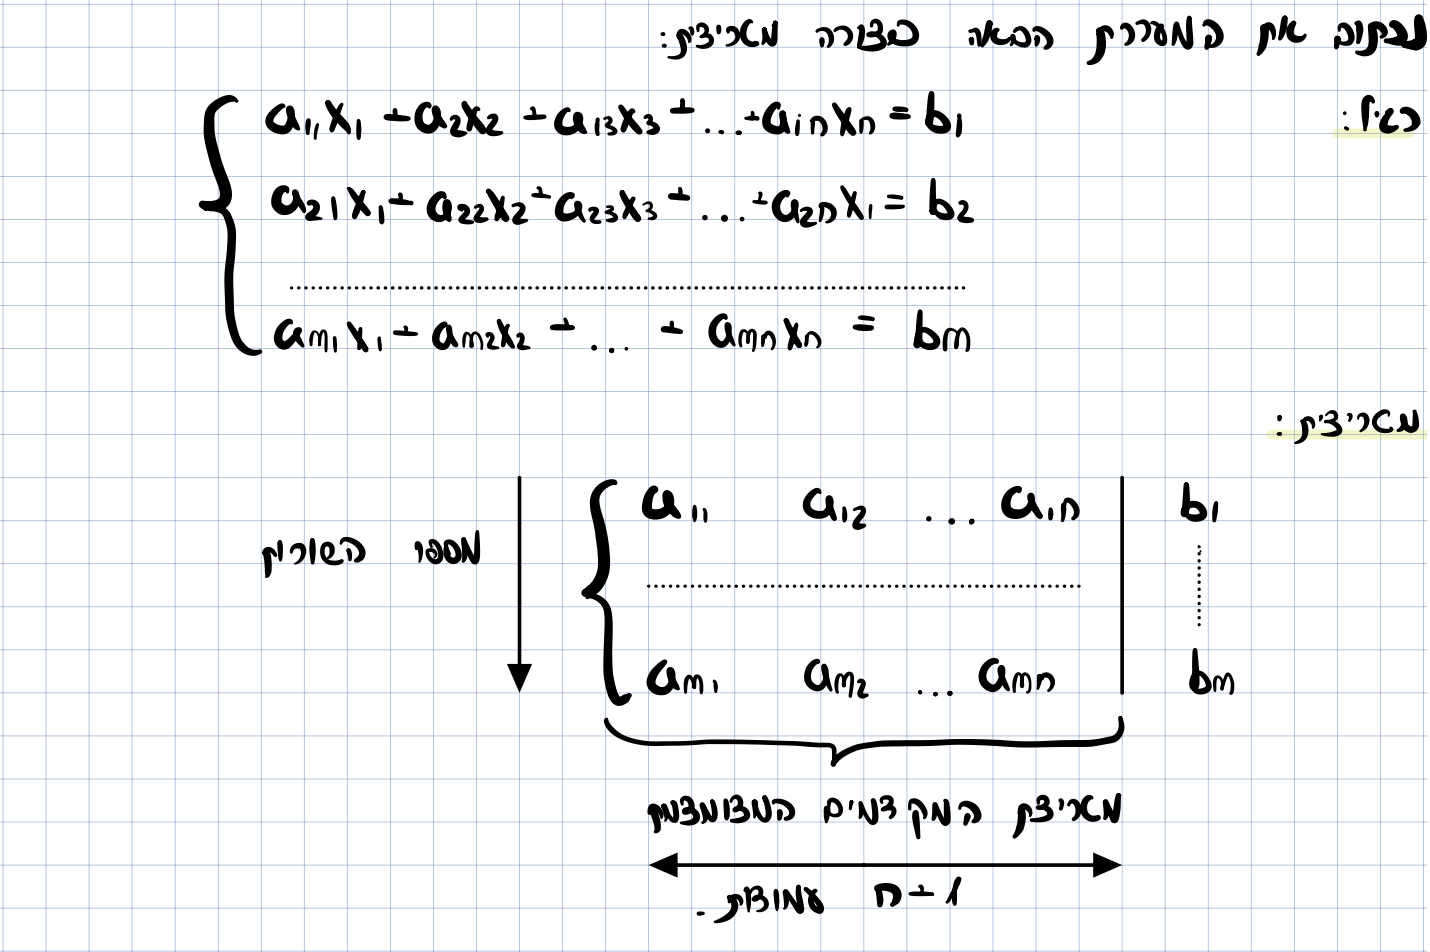 לכתוב את המערכת הבאה בצורה מטריצית:
רגיל:
a₁₁x₁ + a₂x₂ + a₁₃x₃ + ... + a₁ₙxₙ = b₁
a₂₁x₁ + a₂₂x₂ + a₂₃x₃ + ... + a₂ₙx₁ = b₂
................................................
aₘ₁x₁ + aₘ₂x₂ + ... + aₘₙxₙ = bₘ
מטריצית:
a₁₁ a₁₂ ... a₁ₙ | b₁
מספר השורות
aₘ₁ aₘ₂ ... aₘₙ | bₘ
מטריצת המקדמים המצומצמת
n+1 עמודות.